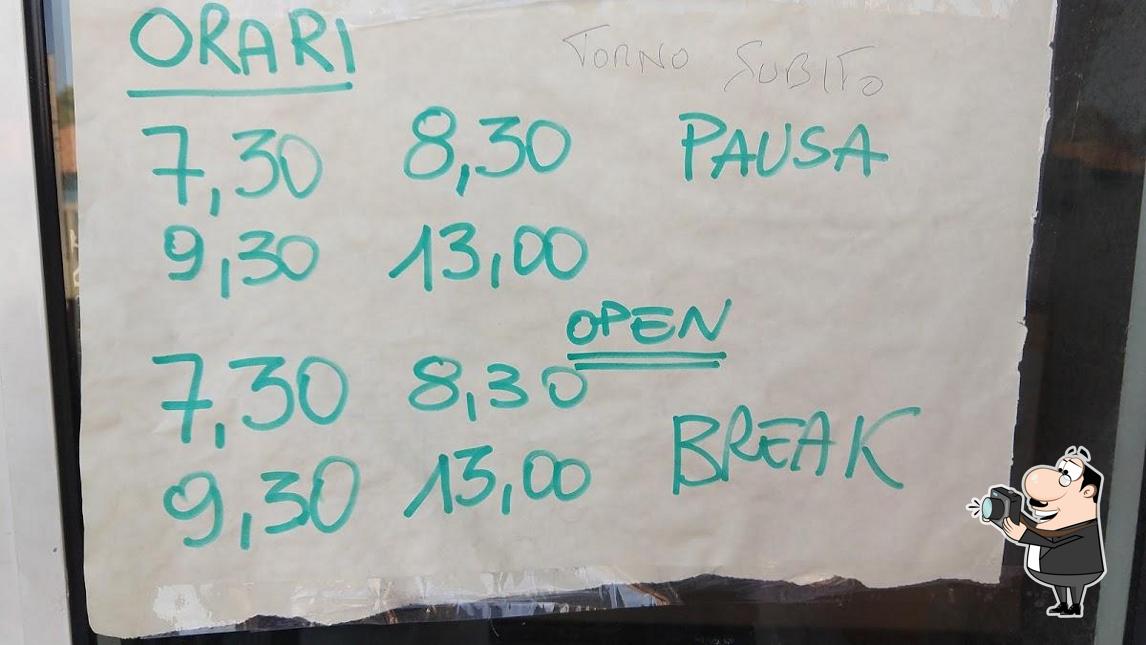 ORARI
TORNO SUBITO
7,30 8,30 PAUSA
9,30 13,00
OPEN
7,30 8,30
9,30 13,00 BREAK